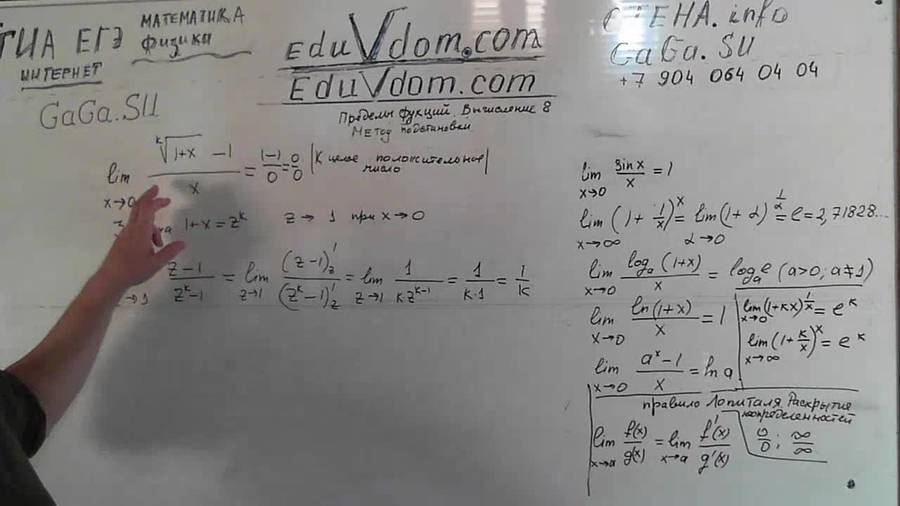 ГИА ЕГЭ
МАТЕМАТИКА
физика
ИНТЕРНЕТ
GaGa.SU
EduVdom.com
EduVdom.com
Пределы функций. Вычисление 8
Метод подстановки
СТЕНА.info
GaGa.SU
+7 904 064 04 04
lim x→0 (ᵏ√(1+x) −1)/x = (1−1)/0 = 0/0 | К целое положительное число |
1+x = zᵏ z → 1 при x→0
→1 (z−1)/(zᵏ−1) = lim z→1 (z−1)'z/(zᵏ−1)'z = lim z→1 1/(kzᵏ⁻¹) = 1/(k·1) = 1/k
lim x→0 sin x/x = 1
lim x→∞ (1 + 1/x)ˣ = lim α→0 (1+α)^(1/α) = e = 2,71828...
lim x→0 logₐ(1+x)/x = logₐe (a>0; a≠1)
lim x→0 ln(1+x)/x = 1
lim x→0 (1+kx)^(1/x) = eᵏ
lim x→∞ (1+k/x)ˣ = eᵏ
lim x→0 (aˣ−1)/x = ln a
правило Лопиталя. Раскрытие
неопределенностей
lim x→a f(x)/g(x) = lim x→a f'(x)/g'(x)
0/0 ; ∞/∞